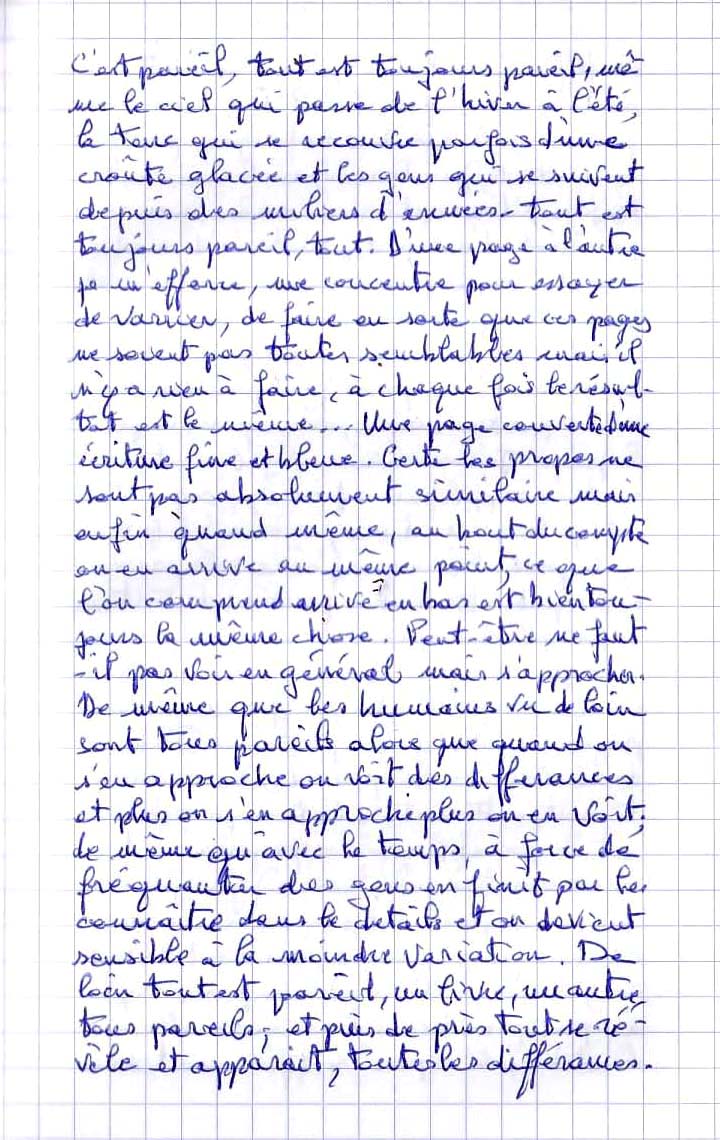 C'est pareil, tout est toujours pareil, mê
me le ciel qui passe de l'hiver à l'été,
la terre qui se recouvre parfois d'une
croûte glacée et les gens qui se suivent
depuis des milliers d'années - tout est
toujours pareil, tout. D'une page à l'autre
je m'efforce, me concentre pour essayer
de varier, de faire en sorte que ces pages
ne soient pas toutes semblables mais il
n'y a rien à faire, à chaque fois le résul-
tat est le même... Une page couverte d'une
écriture fine et bleue. Certe les propos ne
sont pas absolument similaire mais
enfin quand même, au bout du compte
on en arrive au même point, ce que
l'on comprend arrivé en bas est bien tou-
jours la même chose. Peut-être ne faut
-il pas voir en général mais s'approcher.
De même que les humains vu de loin
sont tous pareils alors que quand on
s'en approche on voit des differances
et plus on s'en approche plus on en voit,
de même qu'avec le temps, à force de
fréquanter des gens on finit par les
connaître dans le détails et on devient
sensible à la moindre variation. De
loin tout est pareil, un livre, un autre,
tous pareils, et puis de près tout se ré-
vèle et apparait, toutes les différances.